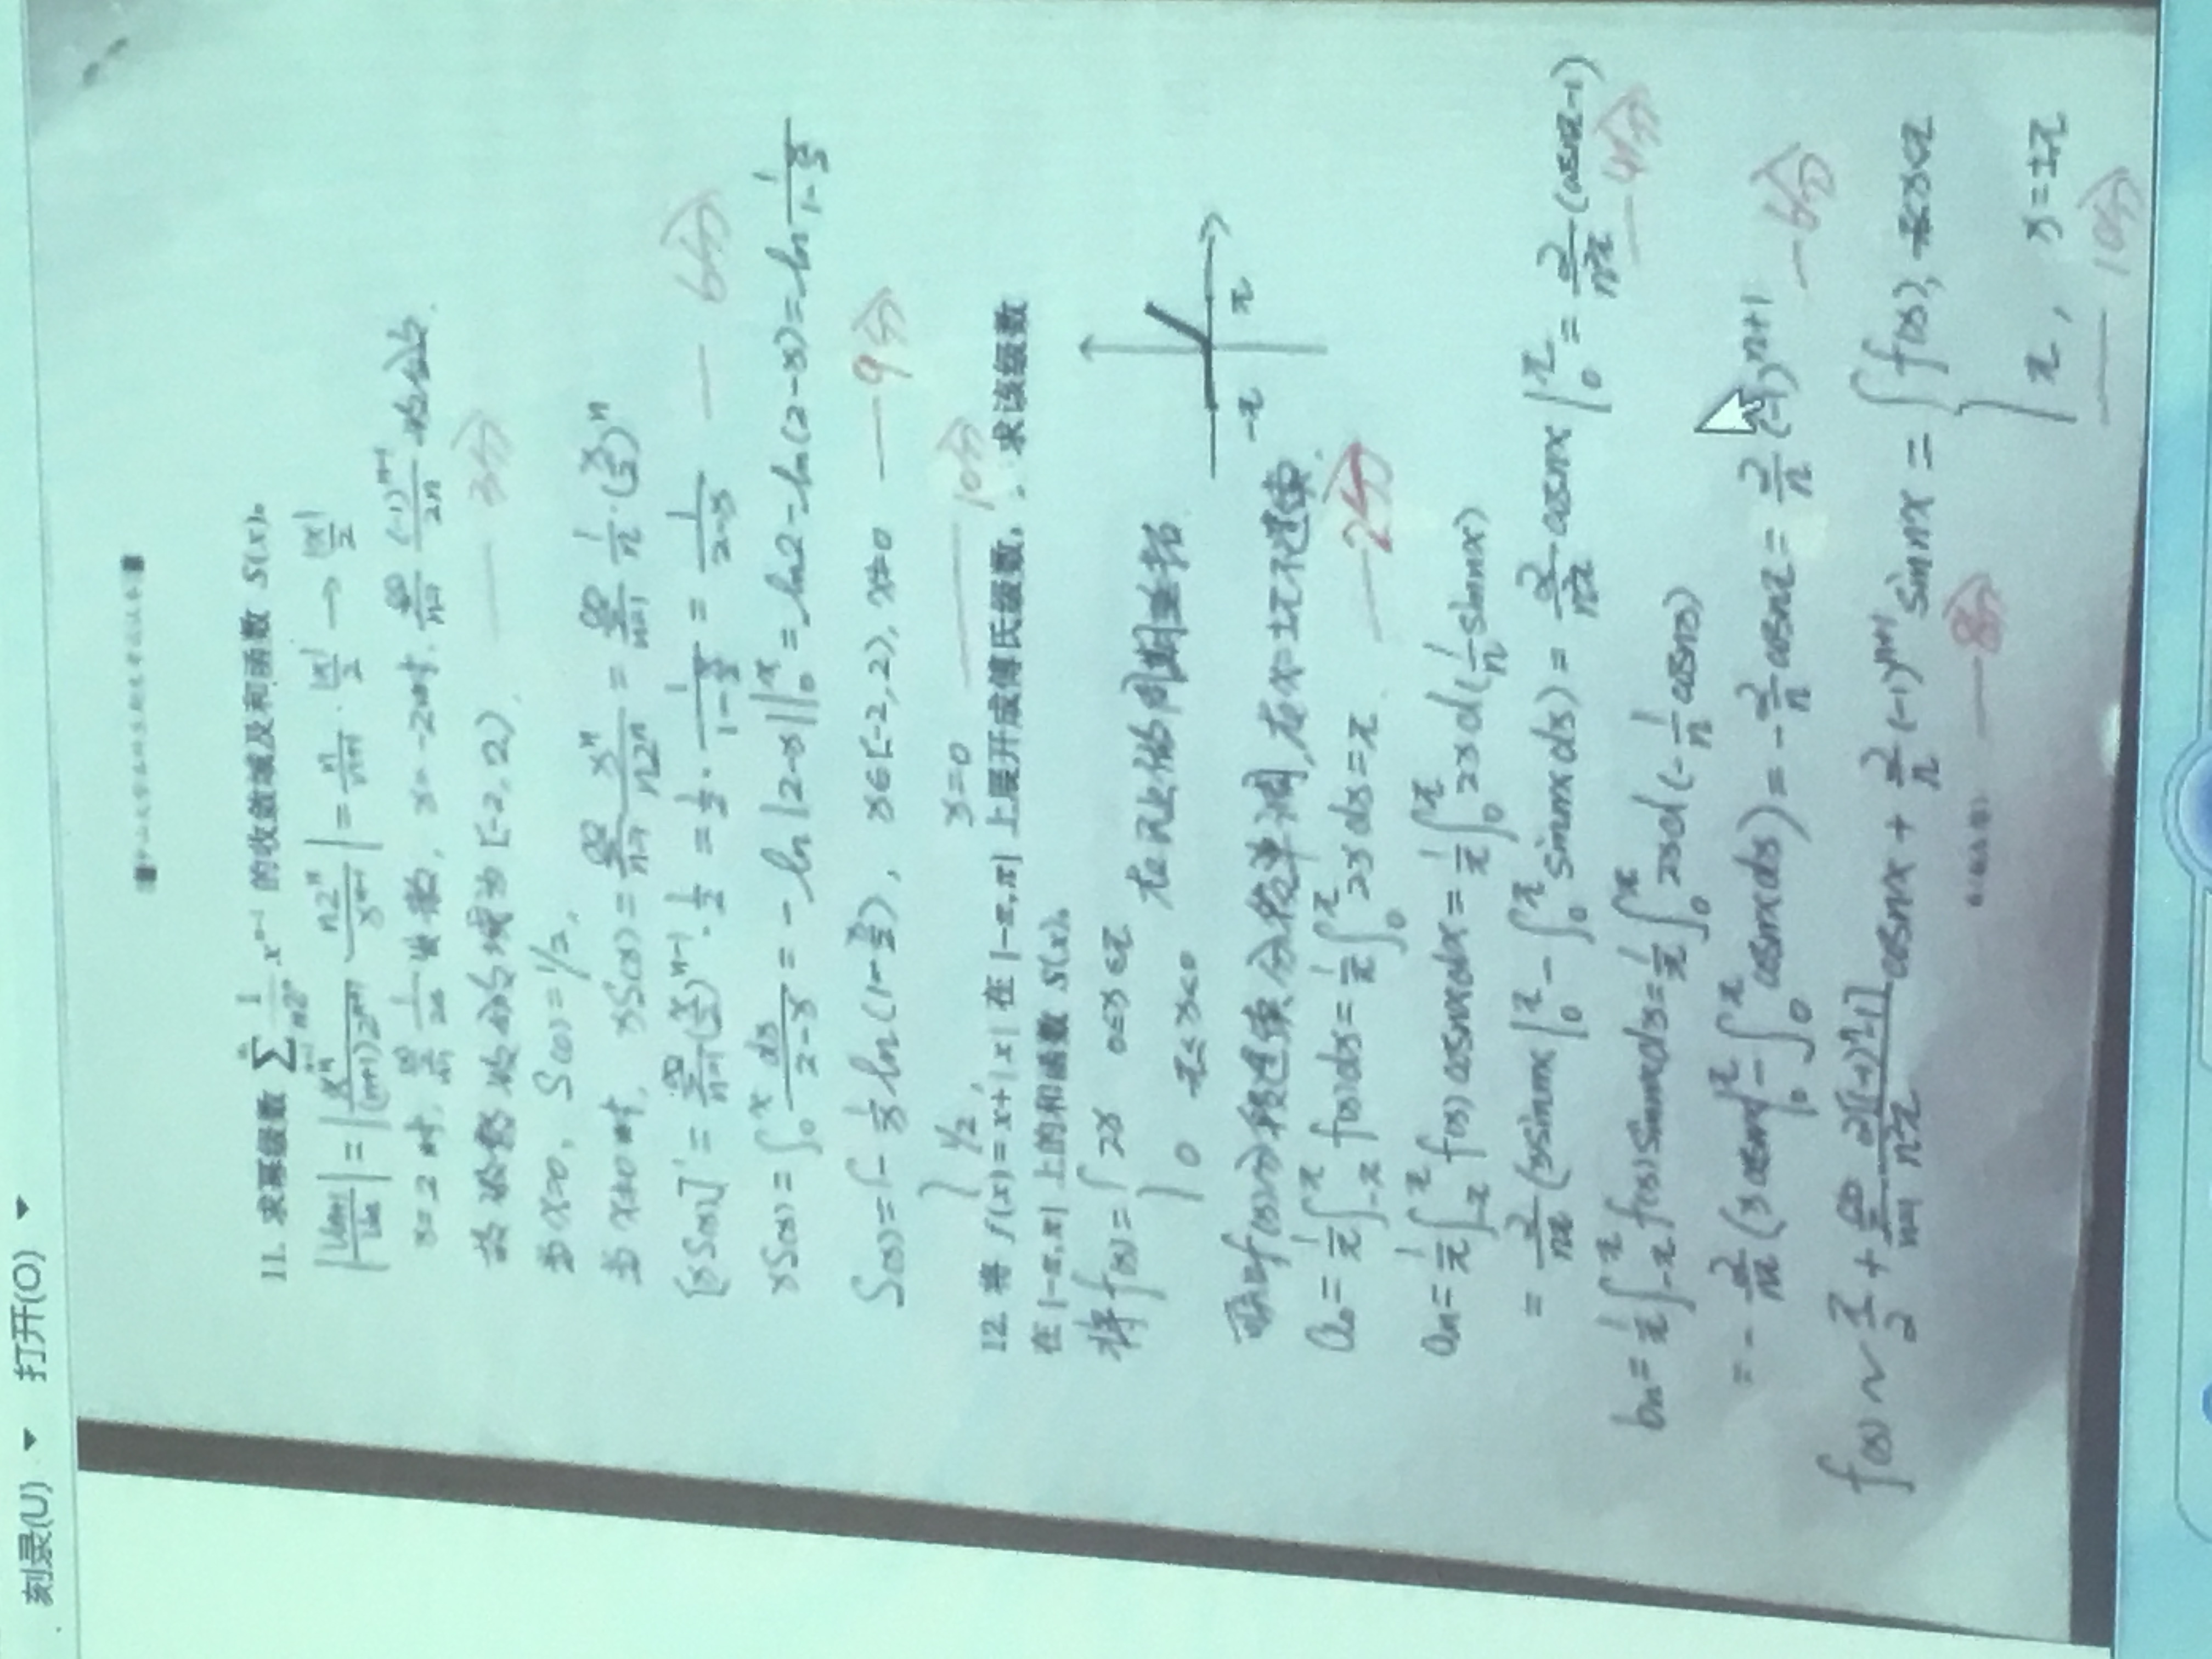 刻录(U) 打开(O)
中山大学本科生期末考试试卷
11. 求幂级数 ∑_{n=1}^{∞} 1/(n2^n) x^{n-1} 的收敛域及和函数 S(x)。
|U_{n+1}/U_n| = |x^n/((n+1)2^{n+1}) · n2^n/x^{n-1}| = n/(n+1) · |x|/2 → |x|/2
x=2时, ∑_{n=1}^{∞} 1/2n 发散, x=-2时, ∑_{n=1}^{∞} (-1)^{n-1}/2n 收敛.
故级数收敛域为[-2,2). —— 3分
当x=0, S(0)=1/2,
当x≠0时, xS(x) = ∑_{n=1}^{∞} x^n/(n2^n) = ∑_{n=1}^{∞} 1/n·(x/2)^n
[xS(x)]' = ∑_{n=1}^{∞} (x/2)^{n-1}·1/2 = 1/2 · 1/(1-x/2) = 1/(2-x) —— 6分
xS(x) = ∫_0^x dx/(2-x) = -ln|2-x| |_0^x = ln2-ln(2-x) = ln 1/(1-x/2)
S(x) = { -1/x ln(1-x/2), x∈[-2,2), x≠0 —— 9分
1/2, x=0 —— 10分
12. 将 f(x)=x+|x| 在 [-π,π] 上展开成傅氏级数, 求该级数
在 [-π,π] 上的和函数 S(x)。
将f(x) = { 2x 0≤x≤π
0 -π≤x<0 在R上做周期延拓
-π π
f(x)分段连续,分段单调,在x=±π不连续.
a₀ = 1/π ∫_{-π}^{π} f(x)dx = 1/π ∫_0^π 2xdx = π. —— 2分
a_n = 1/π ∫_{-π}^{π} f(x)cosnxdx = 1/π ∫_0^π 2xd(1/n sinnx)
= 2/nπ (xsinnx|_0^π - ∫_0^π sinnxdx) = 2/n²π cosnx|_0^π = 2/n²π (cosnπ-1) —— 4分
b_n = 1/π ∫_{-π}^{π} f(x)sinnxdx = 1/π ∫_0^π 2xd(-1/n cosnx)
= -2/nπ (xcosnx|_0^π - ∫_0^π cosnxdx) = -2/n cosnπ = 2/n (-1)^{n+1} —— 6分
f(x) ~ π/2 + ∑_{n=1}^{∞} 2[(-1)^n-1]/n²π cosnx + 2/n (-1)^{n+1} sinnx = { f(x), -π<x<π
—— 8分
π, x=±π
—— 10分